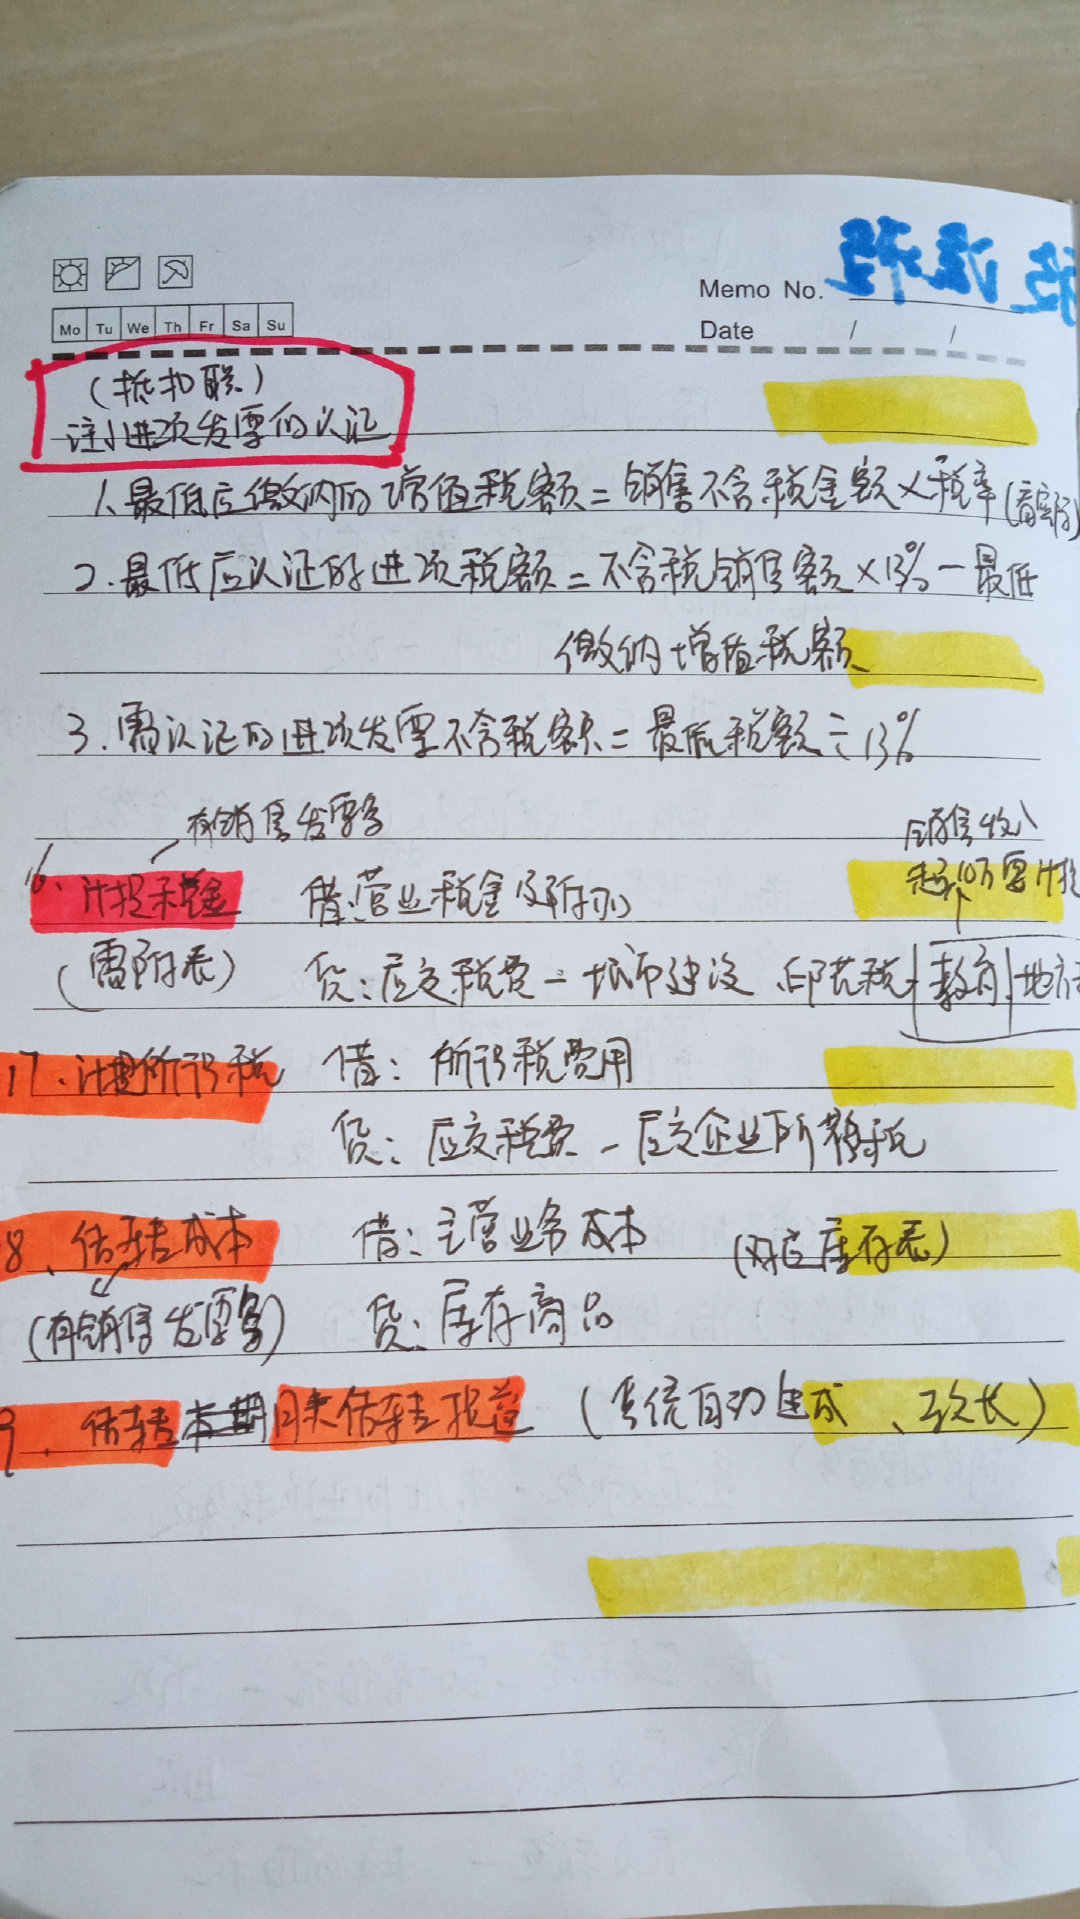 Memo No.
Mo Tu We Th Fr Sa Su
Date / /
(抵扣联)
注：进项发票的认证
1.最低应缴纳的增值税额=销售不含税金额×税率
2.最低应认证的进项税额=不含税销售额×13%-最低
缴纳增值税额
3.需认证的进项发票不含税额=最低税额÷13%
有销售发票多
销售收入
16、计提税金 借:营业税金及附加
10万要计提
(需附表) 贷:应交税费-城市建设、印花税 教育 地方
17.计提所得税 借:所得税费用
贷:应交税费-应交企业所得税
8、结转成本 借:主营业务成本 (对应库存表)
(有销售发票多) 贷:库存商品
9.结转本期月末结转损益 (系统自动生成、